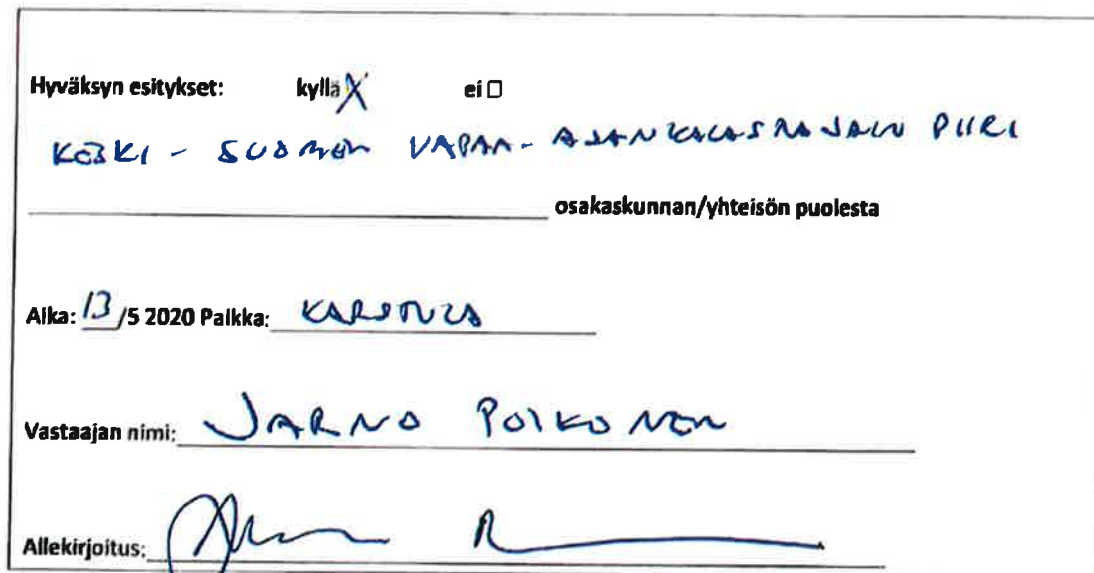 Hyväksyn esitykset: kyllä X ei ☐
KESKI - SUOMEN VAPAA- AJANKALASTAJAIN PIIRI
osakaskunnan/yhteisön puolesta
Aika: 13/5 2020 Paikka: KARSTULA
Vastaajan nimi: JARNO POIKONEN
Allekirjoitus: